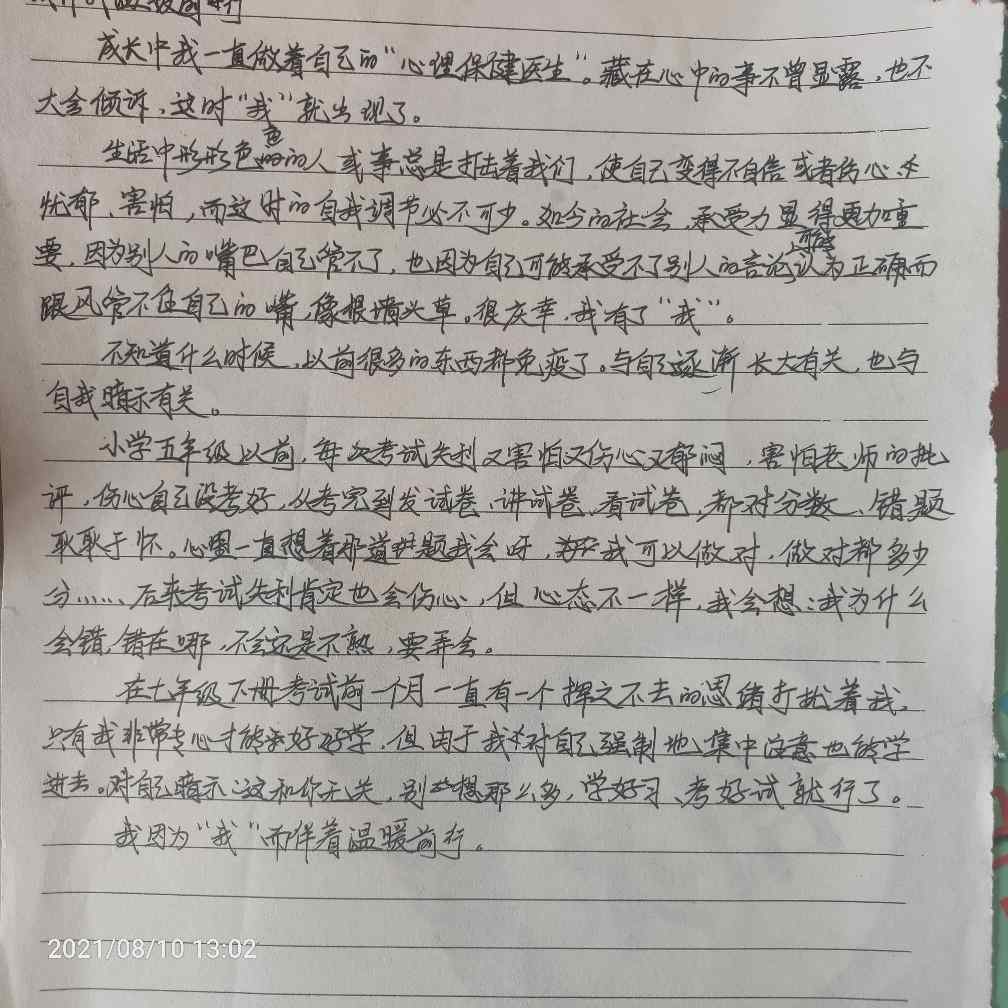 前行
成长中我一直做着自己的“心理保健医生”。藏在心中的事不曾显露，也不
大会倾诉，这时“我”就出现了。
生活中形形色色的人或事总是打击着我们，使自己变得不自信或者伤心
忧郁、害怕，而这时的自我调节必不可少。如今的社会，承受力显得更加重
要，因为别人的嘴巴自己管不了，也因为自己可能承受不了别人的言论，认为正确而
跟风管不住自己的嘴，像根墙头草。很庆幸，我有了“我”。
不知道什么时候，以前很多的东西都免疫了。与自己逐渐长大有关，也与
自我暗示有关。
小学五年级以前，每次考试失利又害怕又伤心又郁闷，害怕老师的批
评，伤心自己没考好，从考完到发试卷、讲试卷、看试卷，都对分数、错题
耿耿于怀。心里一直想着那道题我会呀，我可以做对，做对都多少
分……后来考试失利肯定也会伤心，但心态不一样，我会想：我为什么
会错，错在哪，不会还是不熟，要弄会。
在七年级下册考试前一个月一直有一个挥之不去的思绪打扰着我，
只有我非常专心才能好好学，但由于我对自己强制地集中注意也能学
进去。对自己暗示：这和你无关，别想那么多，学好习、考好试就行了。
我因为“我”而伴着温暖前行。
2021/08/10 13:02